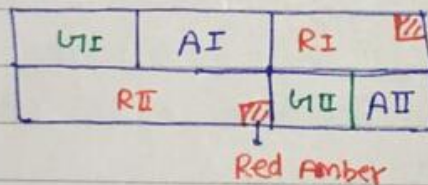 GI AI RI
RII GII AII
Red Amber